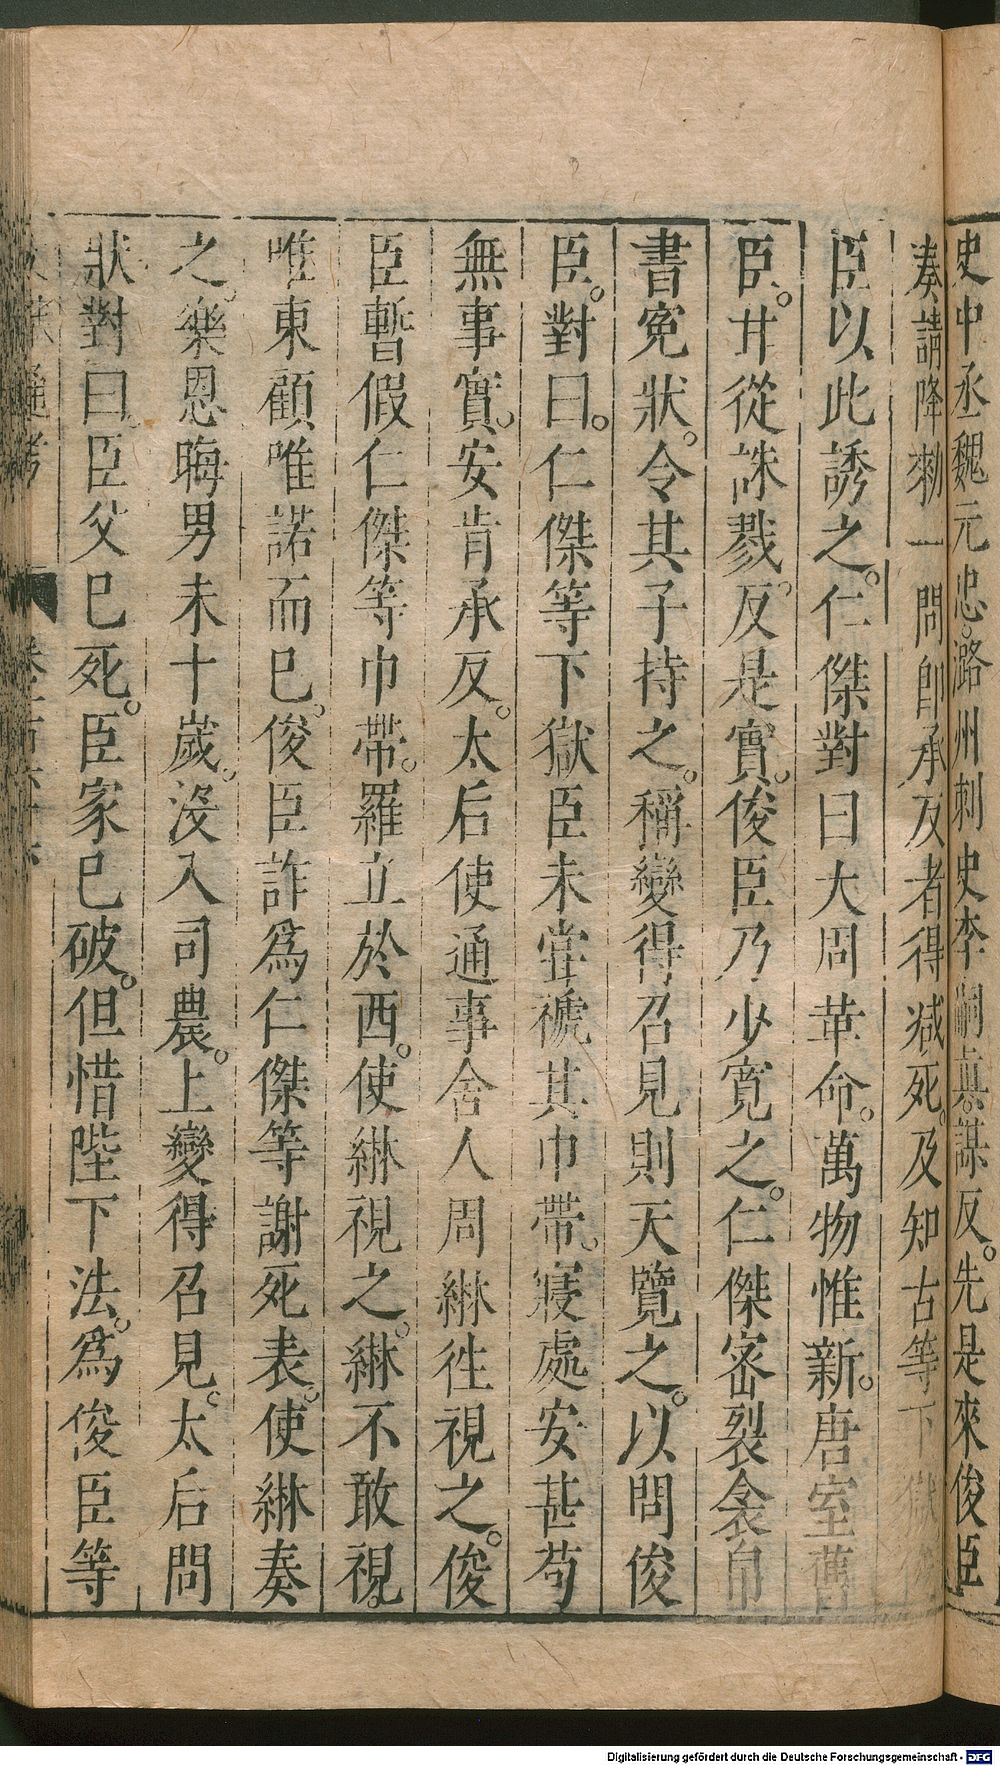 史中丞魏元忠潞州刺史李嗣真謀反先是來俊臣
奏請降勑一問即承反者得减死及知古等下獄
臣以此誘之仁傑對曰大周革命萬物惟新唐室舊
臣甘從誅戮反是實俊臣乃少寬之仁傑密裂衾帛
書寃狀令其子持之稱變得召見則天覽之以問俊
臣對曰仁傑等下獄臣未甞禠其巾帶寢處安甚茍
無事實安肯承反太后使通事舍人周綝徃視之俊
臣暫假仁傑等巾帶羅立於西使綝視之綝不敢視
唯東顧唯諾而已俊臣詐爲仁傑等謝死表使綝奏
之樂思晦男未十歲沒入司農上變得召見太后問
狀對曰臣父已死臣家已破但惜陛下法爲俊臣等
通考
Digitalisierung gefördert durch die Deutsche Forschungsgemeinschaft - DFG